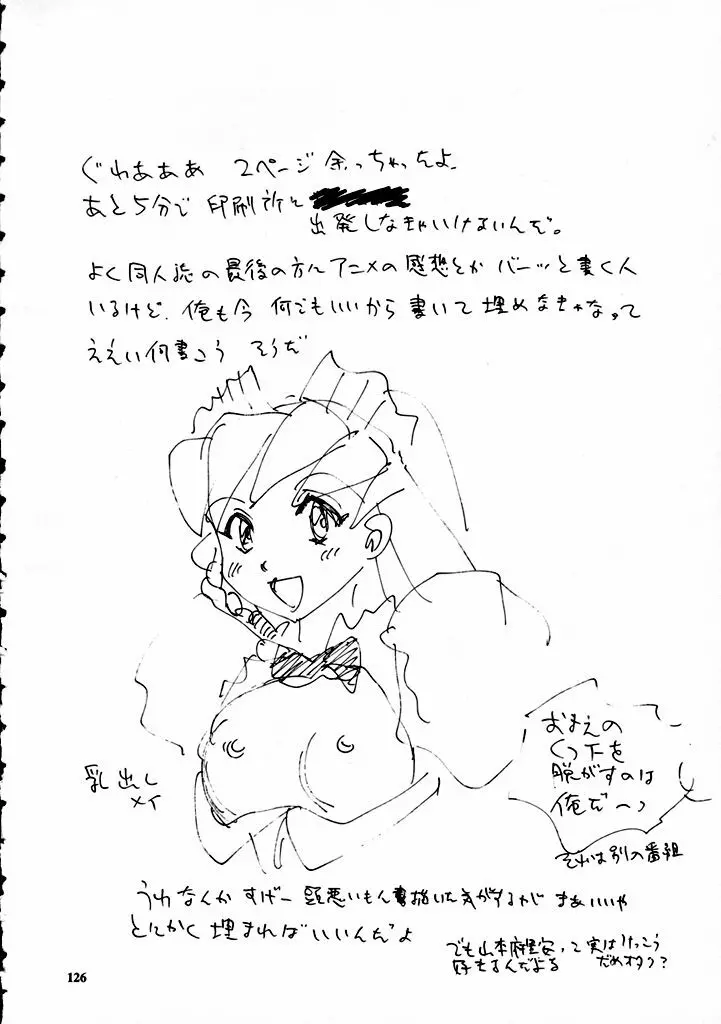 ぐわあああ 2ページ余っちゃったよ、
あと5分で印刷所に
出発しなきゃいけないんだ。
よく同人誌の最後の方にアニメの感想とかバーッと書く人
いるけど、俺も今何でもいいから書いて埋めなきゃなって
ええい何書こう そうだ
乳出し
メイ
おまえの
くつ下を
脱がすのは
俺だ〜っ
それは別の番組
うわなんかすげー頭悪いもん書描いた気がするがじ まあいいや
とにかく埋まればいいんだよ
でも山本麻里安って実はけっこう
好きなんだよな
だめオタク?
126